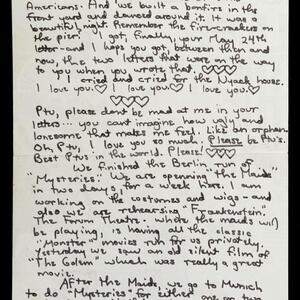 Americans. And we built a bonfire in the
front yard and danced around it. It was a
beautiful night. Remember the fire-crackers on
the pier? I got, finally, your July 24th
letter - and I hope you got, between then and
now, the two letters that were on the way
to you when you wrote that.
I cried and cried for the Nyack house.
I love you. I love you. I love you.
Ptu, please dont be mad at me in your
letters... you cant imagine how ugly and
lonesome that makes me feel. Like an orphan.
Oh, Ptu, I love you so much. Please be Ptu's.
Best Ptu's in the world. Please!
We finished the Berlin run of
"Mysteries". We are opening "The Maids"
in two days, for a week here. I am
working on the costumes and wigs - and
also we are rehearsing Frankenstein.
The Forum Theatre - where the maids will
be playing, is having all the classic
"Monster" movies run for us privately.
Yesterday we saw an old silent film of
"The Golem" which was really a great
movie.
After The Maids, we go to Munich
to do "Mysteries" for either one or two